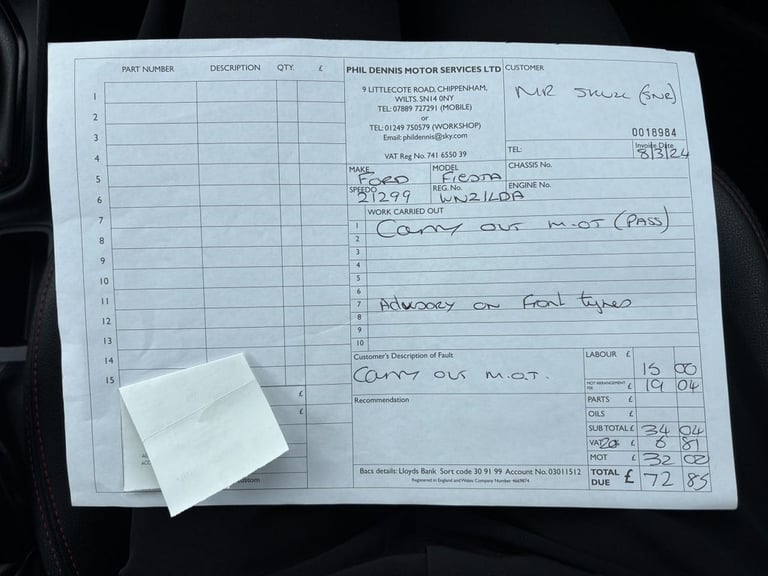 PART NUMBER DESCRIPTION QTY. £
1
2
3
4
5
6
7
8
9
10
11
12
13
14
15
£
£
PHIL DENNIS MOTOR SERVICES LTD
9 LITTLECOTE ROAD, CHIPPENHAM,
WILTS. SN14 0NY
TEL: 07889 727291 (MOBILE)
or
TEL: 01249 750579 (WORKSHOP)
Email: phildennis@sky.com
VAT Reg No. 741 6550 39
CUSTOMER
MR (SNR)
0018984
Invoice Date
TEL: 8/3/24
MAKE FORD MODEL FIESTA CHASSIS No.
SPEEDO 21299 REG. No. WN21LDA ENGINE No.
WORK CARRIED OUT
1 Carry out M.O.T (PASS)
2
3
4
5
6
7 Advisory on front tyres
8
9
10
Customer's Description of Fault
Carry out M.O.T.
Recommendation
LABOUR £ 15 00
MOT ARRANGEMENT FEE £ 19 04
PARTS £
OILS £
SUB TOTAL £ 34 04
VAT 20 £ 6 81
MOT £ 32 00
TOTAL DUE £ 72 85
Bacs details: Lloyds Bank Sort code 30 91 99 Account No. 03011512
Registered in England and Wales: Company Number 4669874